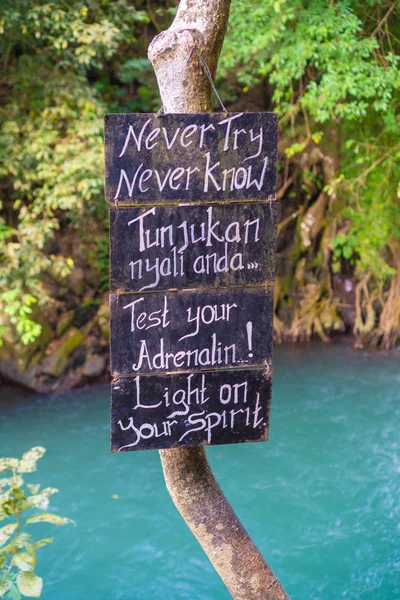 Never Try
Never know
Tunjukan
nyali anda...
Test your
Adrenalin...!
Light on
your spirit.